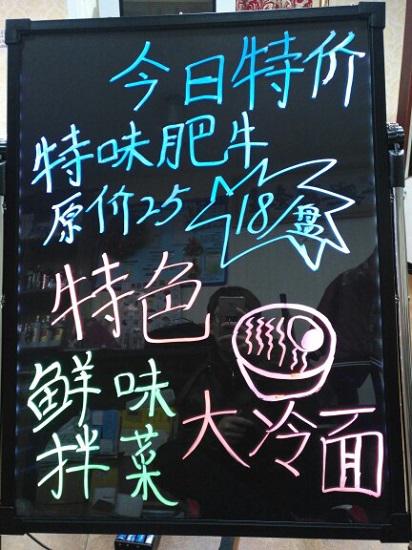 今日特价
特味肥牛
原价25 18/盘
特色
鲜味
拌菜
大冷面